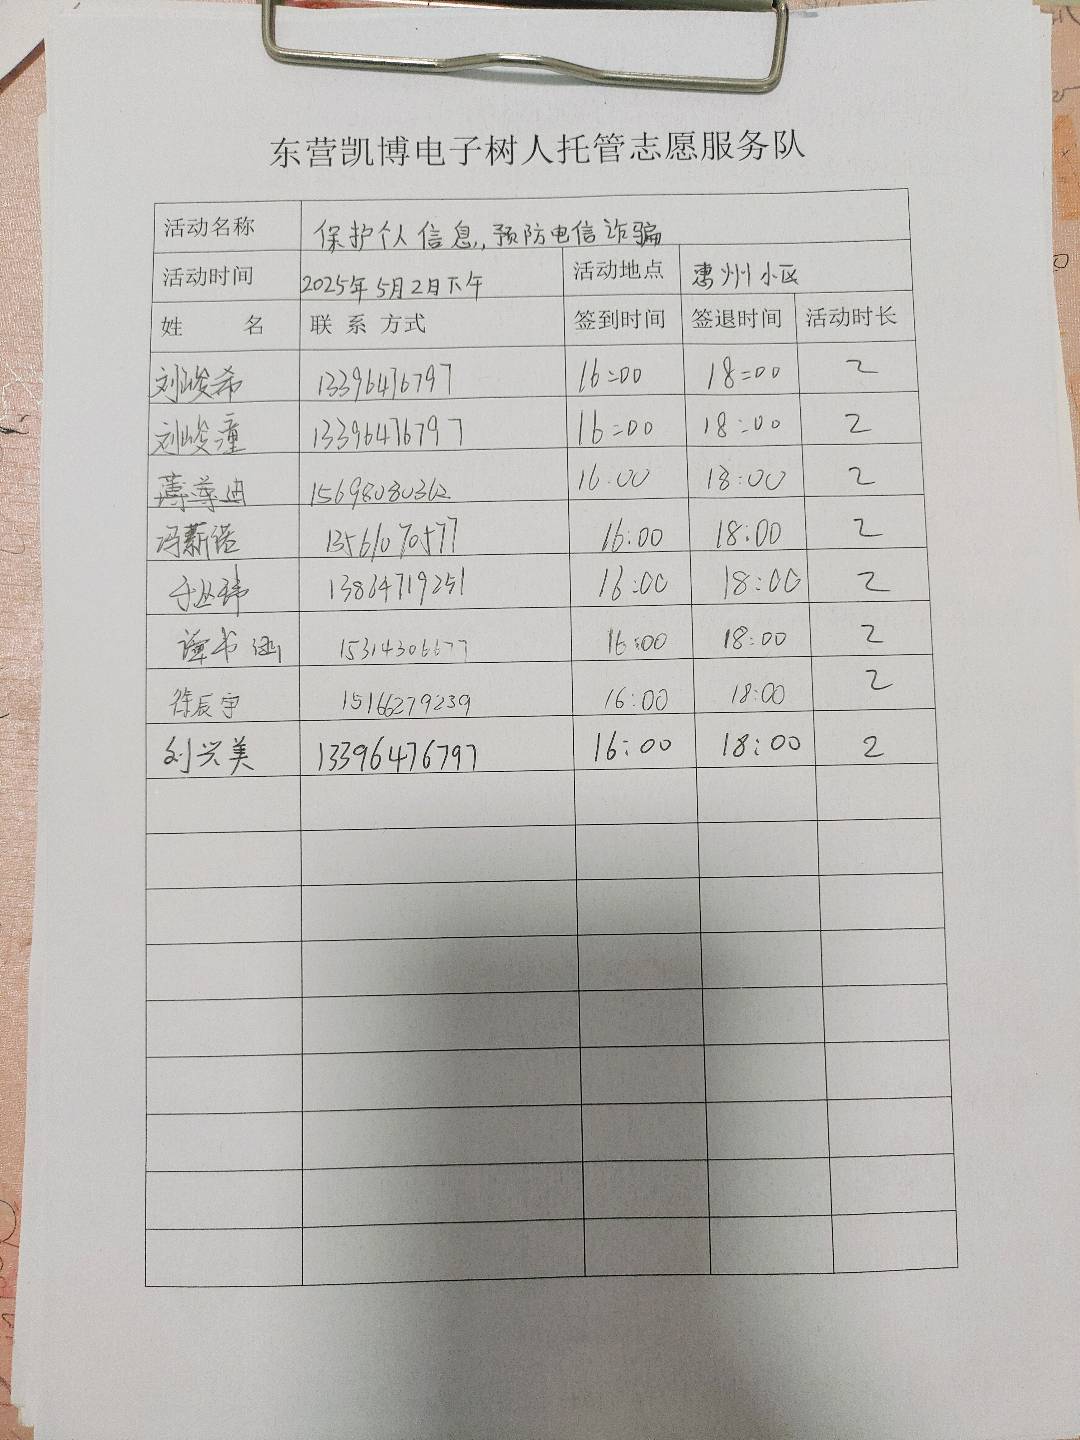 东营凯博电子树人托管志愿服务队
活动名称 保护个人信息,预防电信诈骗
活动时间 2025年5月2日下午 活动地点 惠州小区
姓 名 联 系 方式 签到时间 签退时间 活动时长
刘峻希 13396476797 16:00 18:00 2
刘峻潼 13396476797 16:00 18:00 2
薄尊迪 15698080362 16:00 18:00 2
冯薪诺 13561070577 16:00 18:00 2
于丛玮 13864719251 16:00 18:00 2
谭书涵 15314306677 16:00 18:00 2
徐辰宇 15166279239 16:00 18:00 2
刘兴美 13396476797 16:00 18:00 2